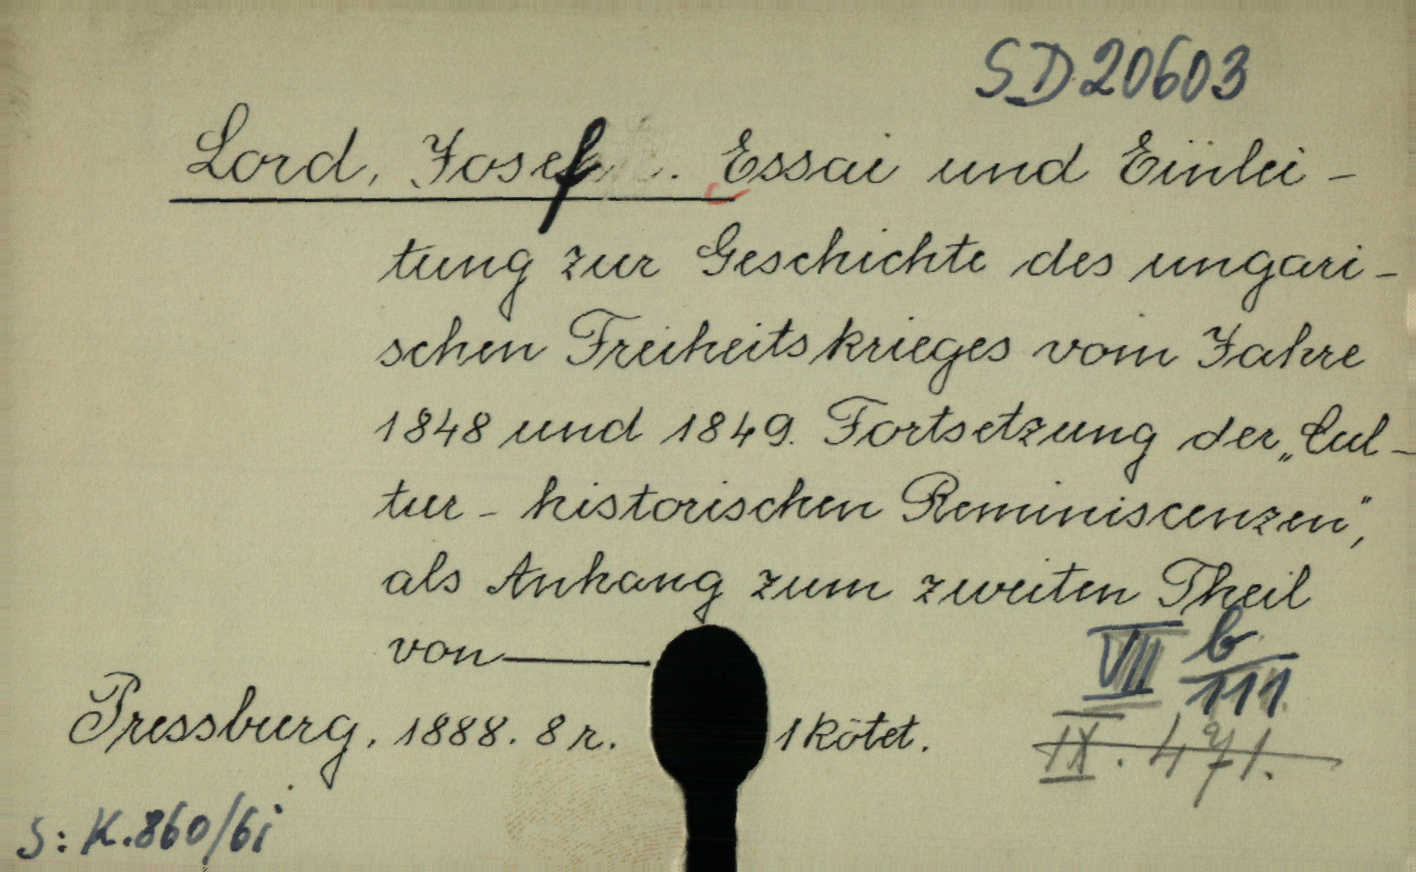 SD 20603
Lord, Josef. Essai und Einlei-
tung zur Geschichte des ungari-
schen Freiheitskrieges vom Jahre
1848 und 1849. Fortsetzung der „Cul-
tur-historischen Reminiscenzen“,
als Anhang zum zweiten Theil
von ——
VII b/111
Pressburg, 1888. 8 r. 1 kötet.
IX. 471.
S: K.860/6i